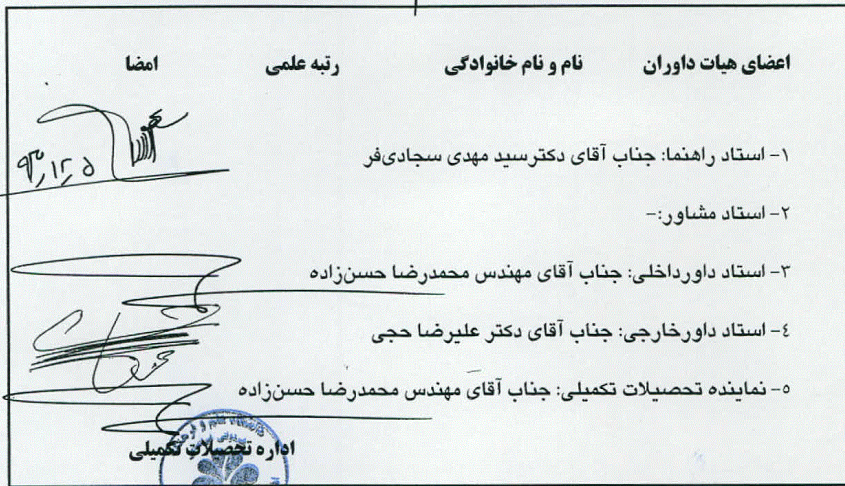 اعضای هیات داوران نام و نام خانوادگی رتبه علمی امضا
۱- استاد راهنما: جناب آقای دکترسید مهدی سجادی‌فر
۹۳,۱۲,۵
۲- استاد مشاور:-
۳- استاد داورداخلی: جناب آقای مهندس محمدرضا حسن‌زاده
٤- استاد داورخارجی: جناب آقای دکتر علیرضا حجی
۵- نماینده تحصیلات تکمیلی: جناب آقای مهندس محمدرضا حسن‌زاده
اداره تحصیلات تکمیلی